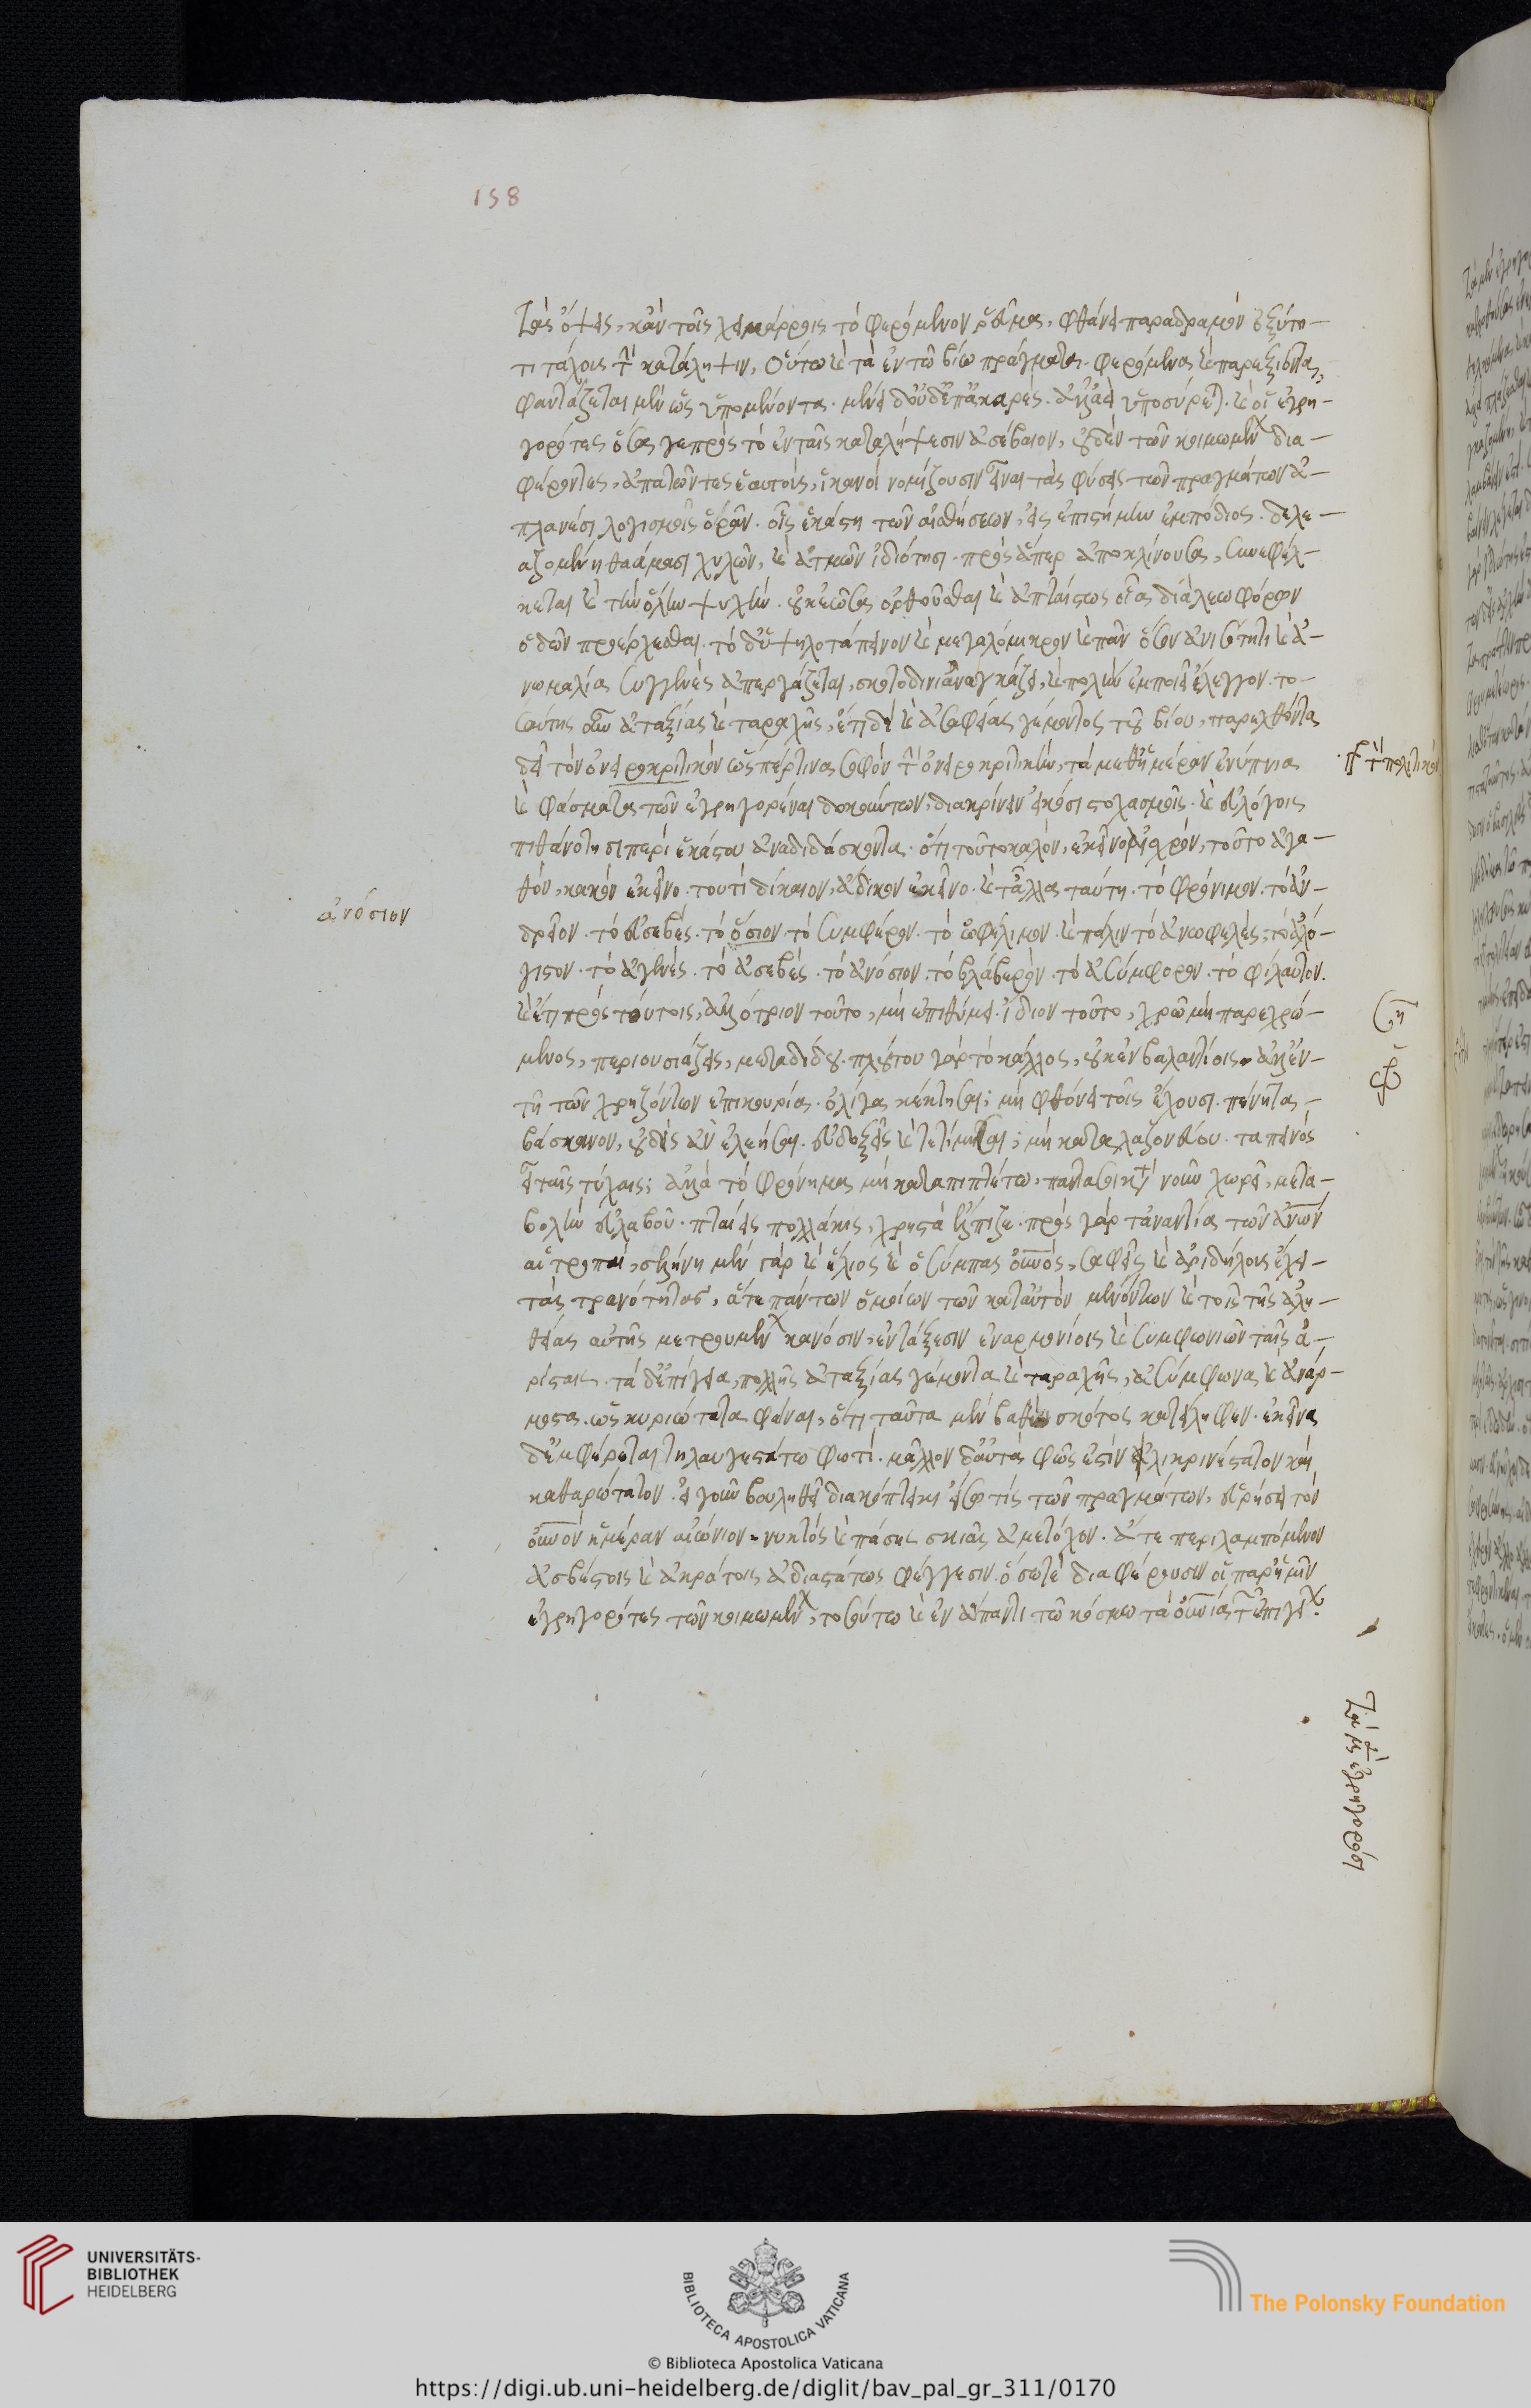 158
τὰς ὄψεις, κἀν τοῖς χειμάρροις τὸ φερόμενον ῥεῦμα, φθάνει παραδραμὸν ὀξύτη-
τι τάχους τὴν κατάληψιν, οὕτω καὶ τὰ ἐν τῶ βίω πράγματα. φερόμενα καὶ παρεξιόντα,
φαντάζεται μὲν ὡς ὑπομένοντα. μένει δ' οὐδ' ἐπ' ἀκαρές. ἀλλ' ἀεὶ ὑποσύρεται. καὶ οἱ ἐγρη-
γορότες ὅσα γε πρὸς τὸ ἐν ταῖς καταλήψεσιν ἀβέβαιον, οὐδὲν τῶν κοιμωμένων δια-
φέροντες, ἀπατῶντες ἑαυτούς, ἱκανοὶ νομίζουσιν εἶναι τὰς φύσεις τῶν πραγμάτων ἀ-
πλανέσι λογισμοῖς ὁρᾶν. οἷς ἑκάστη τῶν αἰσθήσεων, εἰς ἐπιστήμην ἐμπόδιος. δελε-
αζομένη θεάμασι χυλῶν, καὶ ἀτμῶν ἰδιότησι. πρὸς ἅπερ ἀποκλίνουσα, συνεφέλ-
κεται καὶ τὴν ὅλην ψυχήν. οὐκ ἐῶσα ὀρθοῦσθαι καὶ ἀπταίστως οἷα διὰ λεωφόρων
ὁδῶν προέρχεσθαι. τὸ δ' ὑψηλοτάπεινον καὶ μεγαλόμικρον καὶ πᾶν ὅσον ἀνισότητι καὶ ἀ-
νωμαλία συγγενὲς ἀπεργάζεται, σκοτοδινιᾶν ἀναγκάζει, καὶ πολὺν ἐμποιεῖ ἔλεγγον. το-
σαύτης οὖν ἀταξίας καὶ ταραχῆς, ἔτι δὲ καὶ ἀσαφείας γέμοντος τοῦ βίου, παρελθόντα
δεῖ τὸν ὀνειροκριτικὸν ὥσπερ τινα σοφὸν τὴν ὀνειροκριτικήν, τὰ μεθ' ἡμέραν ἐνύπνια
καὶ φάσματα τῶν ἐγρηγορέναι δοκούντων, διακρίνειν εἰκόσι στοχασμοῖς. καὶ εὐλόγοις
πιθανότησι περὶ ἑκάστου ἀναδιδάσκοντα. ὅτι τοῦτο καλόν, ἐκεῖνο αἰσχρόν, τοῦτο ἀγα-
θόν, κακὸν ἐκεῖνο. τουτὶ δίκαιον, ἄδικον ἐκεῖνο. καὶ τἄλλα ταύτη. τὸ φρόνιμον. τὸ ἀν-
δρεῖον. τὸ εὐσεβές. τὸ ὅσιον τὸ συμφέρον. τὸ ὠφέλιμον. καὶ πάλιν τὸ ἀνωφελές, τὸ ἀλό-
γιστον. τὸ ἀγενές. τὸ ἀσεβές. τὸ ἀνόσιον. τὸ βλαβερόν. τὸ ἀσύμφορον. τὸ φίλαυτον.
καὶ ἔτι πρὸς τούτοις, ἀλλότριον τοῦτο, μὴ ἐπιθύμει. ἴδιον τοῦτο, χρῶ μὴ παραχρώ-
μενος, περιουσιάζεις, μεταδίδου. πλούτου γὰρ τὸ κάλλος, οὐκ ἐν βαλαντίοις, ἀλλ' ἐν
τῆ τῶν χρηζόντων ἐπικουρία. ὀλίγα κέκτησαι; μὴ φθόνει τοῖς ἔχουσι. πένητα
βάσκανον, οὐδεὶς ἂν ἐλεήσαι. εὐδοξεῖς καὶ τετίμησαι; μὴ καταλαζονεύου. ταπεινὸς
εἶ ταῖς τύχαις; ἀλλὰ τὸ φρόνημα μὴ καταπιπτέτω. πάντα σοι κατὰ νοῦν χωρεῖ, μετα-
βολὴν εὐλαβοῦ. πταίεις πολλάκις, χρηστὰ ἔλπιζε. πρὸς γὰρ τἀναντία τῶν ἀνων
αἱ τροπαί, σελήνη μὲν γὰρ καὶ ἥλιος καὶ ὁ σύμπας οὐνός, σαφεῖς καὶ ἀριδήλους ἔχει
τὰς τρανότητας, ἅτε πάντων ὁμοίων τῶν κατ' αὐτὸν μενόντων καὶ τοῖς τῆς ἀλη-
θείας αὐτῆς μετρουμένων κανόσιν, ἐν τάξεσιν ἐναρμονίοις καὶ συμφωνιῶν ταῖς ἀ-
ρίσταις. τὰ δ' ἐπίγεια, πολλῆς ἀταξίας γέμοντα καὶ ταραχῆς, ἀσύμφωνα καὶ ἀνάρ-
μοστα. ὡς κυριώτατα φάναι, ὅτι ταῦτα μὲν βαθὺ σκότος κατείληφεν. ἐκεῖνα
δ' ἐμφέρεται τηλαυγεστάτω φωτί. μᾶλλον δ' αὐτὰ φῶς ἐστὶν εἰλικρινέστατον καὶ
καθαρώτατον. εἰ γοῦν βουληθείη διακύπτειν εἴσω τις τῶν πραγμάτων, εὑρήσει τὸν
οὐνὸν ἡμέραν αἰώνιον, νυκτὸς καὶ πάσης σκιᾶς ἀμέτοχον. ἅτε περιλαμπόμενον
ἀσβέστοις καὶ ἀκράτοις ἀδιαστάτως φέγγεσιν. ὅσω τε διαφέρουσιν οἱ παρ' ἡμῖν
ἐγρηγορότες τῶν κοιμωμένων, τοσούτω καὶ ἐν ἅπαντι τῶ κόσμω τὰ οὐνια τῶν ἐπιγείων.
ἀνόσιον
τὰ μὲν ἐγρηγορόσι
UNIVERSITÄTS-
BIBLIOTHEK
HEIDELBERG
BIBLIOTECA APOSTOLICA VATICANA
The Polonsky Foundation
© Biblioteca Apostolica Vaticana
https://digi.ub.uni-heidelberg.de/diglit/bav_pal_gr_311/0170